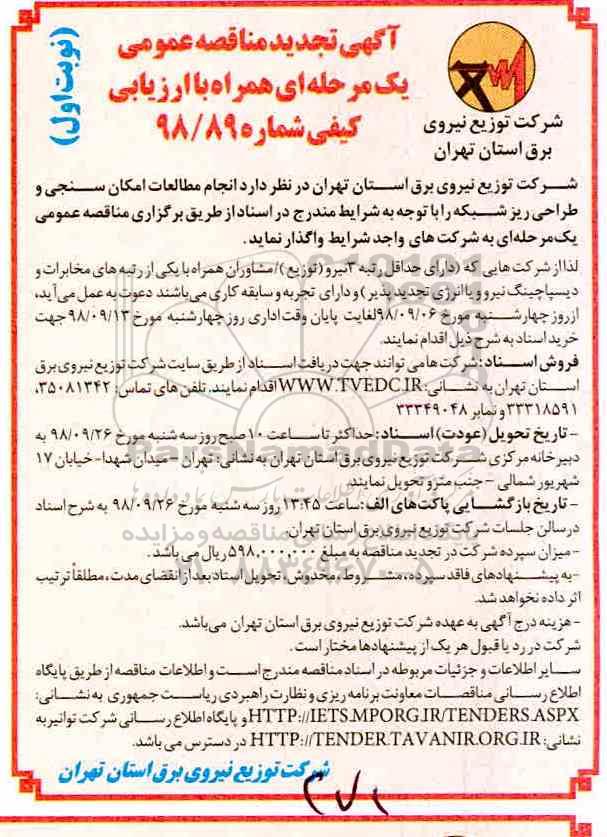 (نوبت اول)
آگهی تجدید مناقصه عمومی
یک مرحله‌ای همراه با ارزیابی
کیفی شماره ۹۸/۸۹
شرکت توزیع نیروی
برق استان تهران
شرکت توزیع نیروی برق استان تهران در نظر دارد انجام مطالعات امکان سنجی و
طراحی ریز شبکه را با توجه به شرایط مندرج در اسناد از طریق برگزاری مناقصه عمومی
یک مرحله‌ای به شرکت های واجد شرایط واگذار نماید.
لذا از شرکت هایی که (دارای حداقل رتبه ۳نیرو (توزیع )/مشاوران همراه با یکی از رتبه های مخابرات و
دیسپاچینگ نیرو و یا انرژی تجدید پذیر) و دارای تجربه و سابقه کاری می‌باشند دعوت به عمل می‌آید،
از روز چهارشنبه مورخ ۹۸/۰۹/۰۶لغایت پایان وقت اداری روز چهارشنبه مورخ ۹۸/۰۹/۱۳ جهت
خرید اسناد به شرح ذیل اقدام نمایند.
فروش اسناد: شرکت ها می توانند جهت دریافت اسناد از طریق سایت شرکت توزیع نیروی برق
استان تهران به نشانی: WWW.TVEDC.IR اقدام نمایند. تلفن های تماس: ۳۵۰۸۱۳۴۲،
۳۳۳۱۸۵۹۱ و نمابر ۳۳۳۴۹۰۴۸
- تاریخ تحویل (عودت) اسناد: حداکثر تا ساعت ۱۰ صبح روز سه شنبه مورخ ۹۸/۰۹/۲۶ به
دبیرخانه مرکزی شرکت توزیع نیروی برق استان تهران به نشانی: تهران - میدان شهدا- خیابان ۱۷
شهریور شمالی - جنب مترو تحویل نمایند.
- تاریخ بازگشایی پاکت های الف: ساعت ۱۳:۴۵ روز سه شنبه مورخ ۹۸/۰۹/۲۶ به شرح اسناد
در سالن جلسات شرکت توزیع نیروی برق استان تهران.
- میزان سپرده شرکت در تجدید مناقصه به مبلغ ۵۹۸,۰۰۰,۰۰۰ ریال می باشد.
- به پیشنهادهای فاقد سپرده، مشروط، مخدوش، تحویل اسناد بعد از انقضای مدت، مطلقاً ترتیب
اثر داده نخواهد شد.
- هزینه درج آگهی به عهده شرکت توزیع نیروی برق استان تهران می‌باشد.
شرکت در رد یا قبول هر یک از پیشنهادها مختار است.
سایر اطلاعات و جزئیات مربوطه در اسناد مناقصه مندرج است و اطلاعات مناقصه از طریق پایگاه
اطلاع رسانی مناقصات معاونت برنامه ریزی و نظارت راهبردی ریاست جمهوری به نشانی:
HTTP://IETS.MPORG.IR/TENDERS.ASPX و پایگاه اطلاع رسانی شرکت توانیر به
نشانی: HTTP://TENDER.TAVANIR.ORG.IR در دسترس می باشد.
شرکت توزیع نیروی برق استان تهران